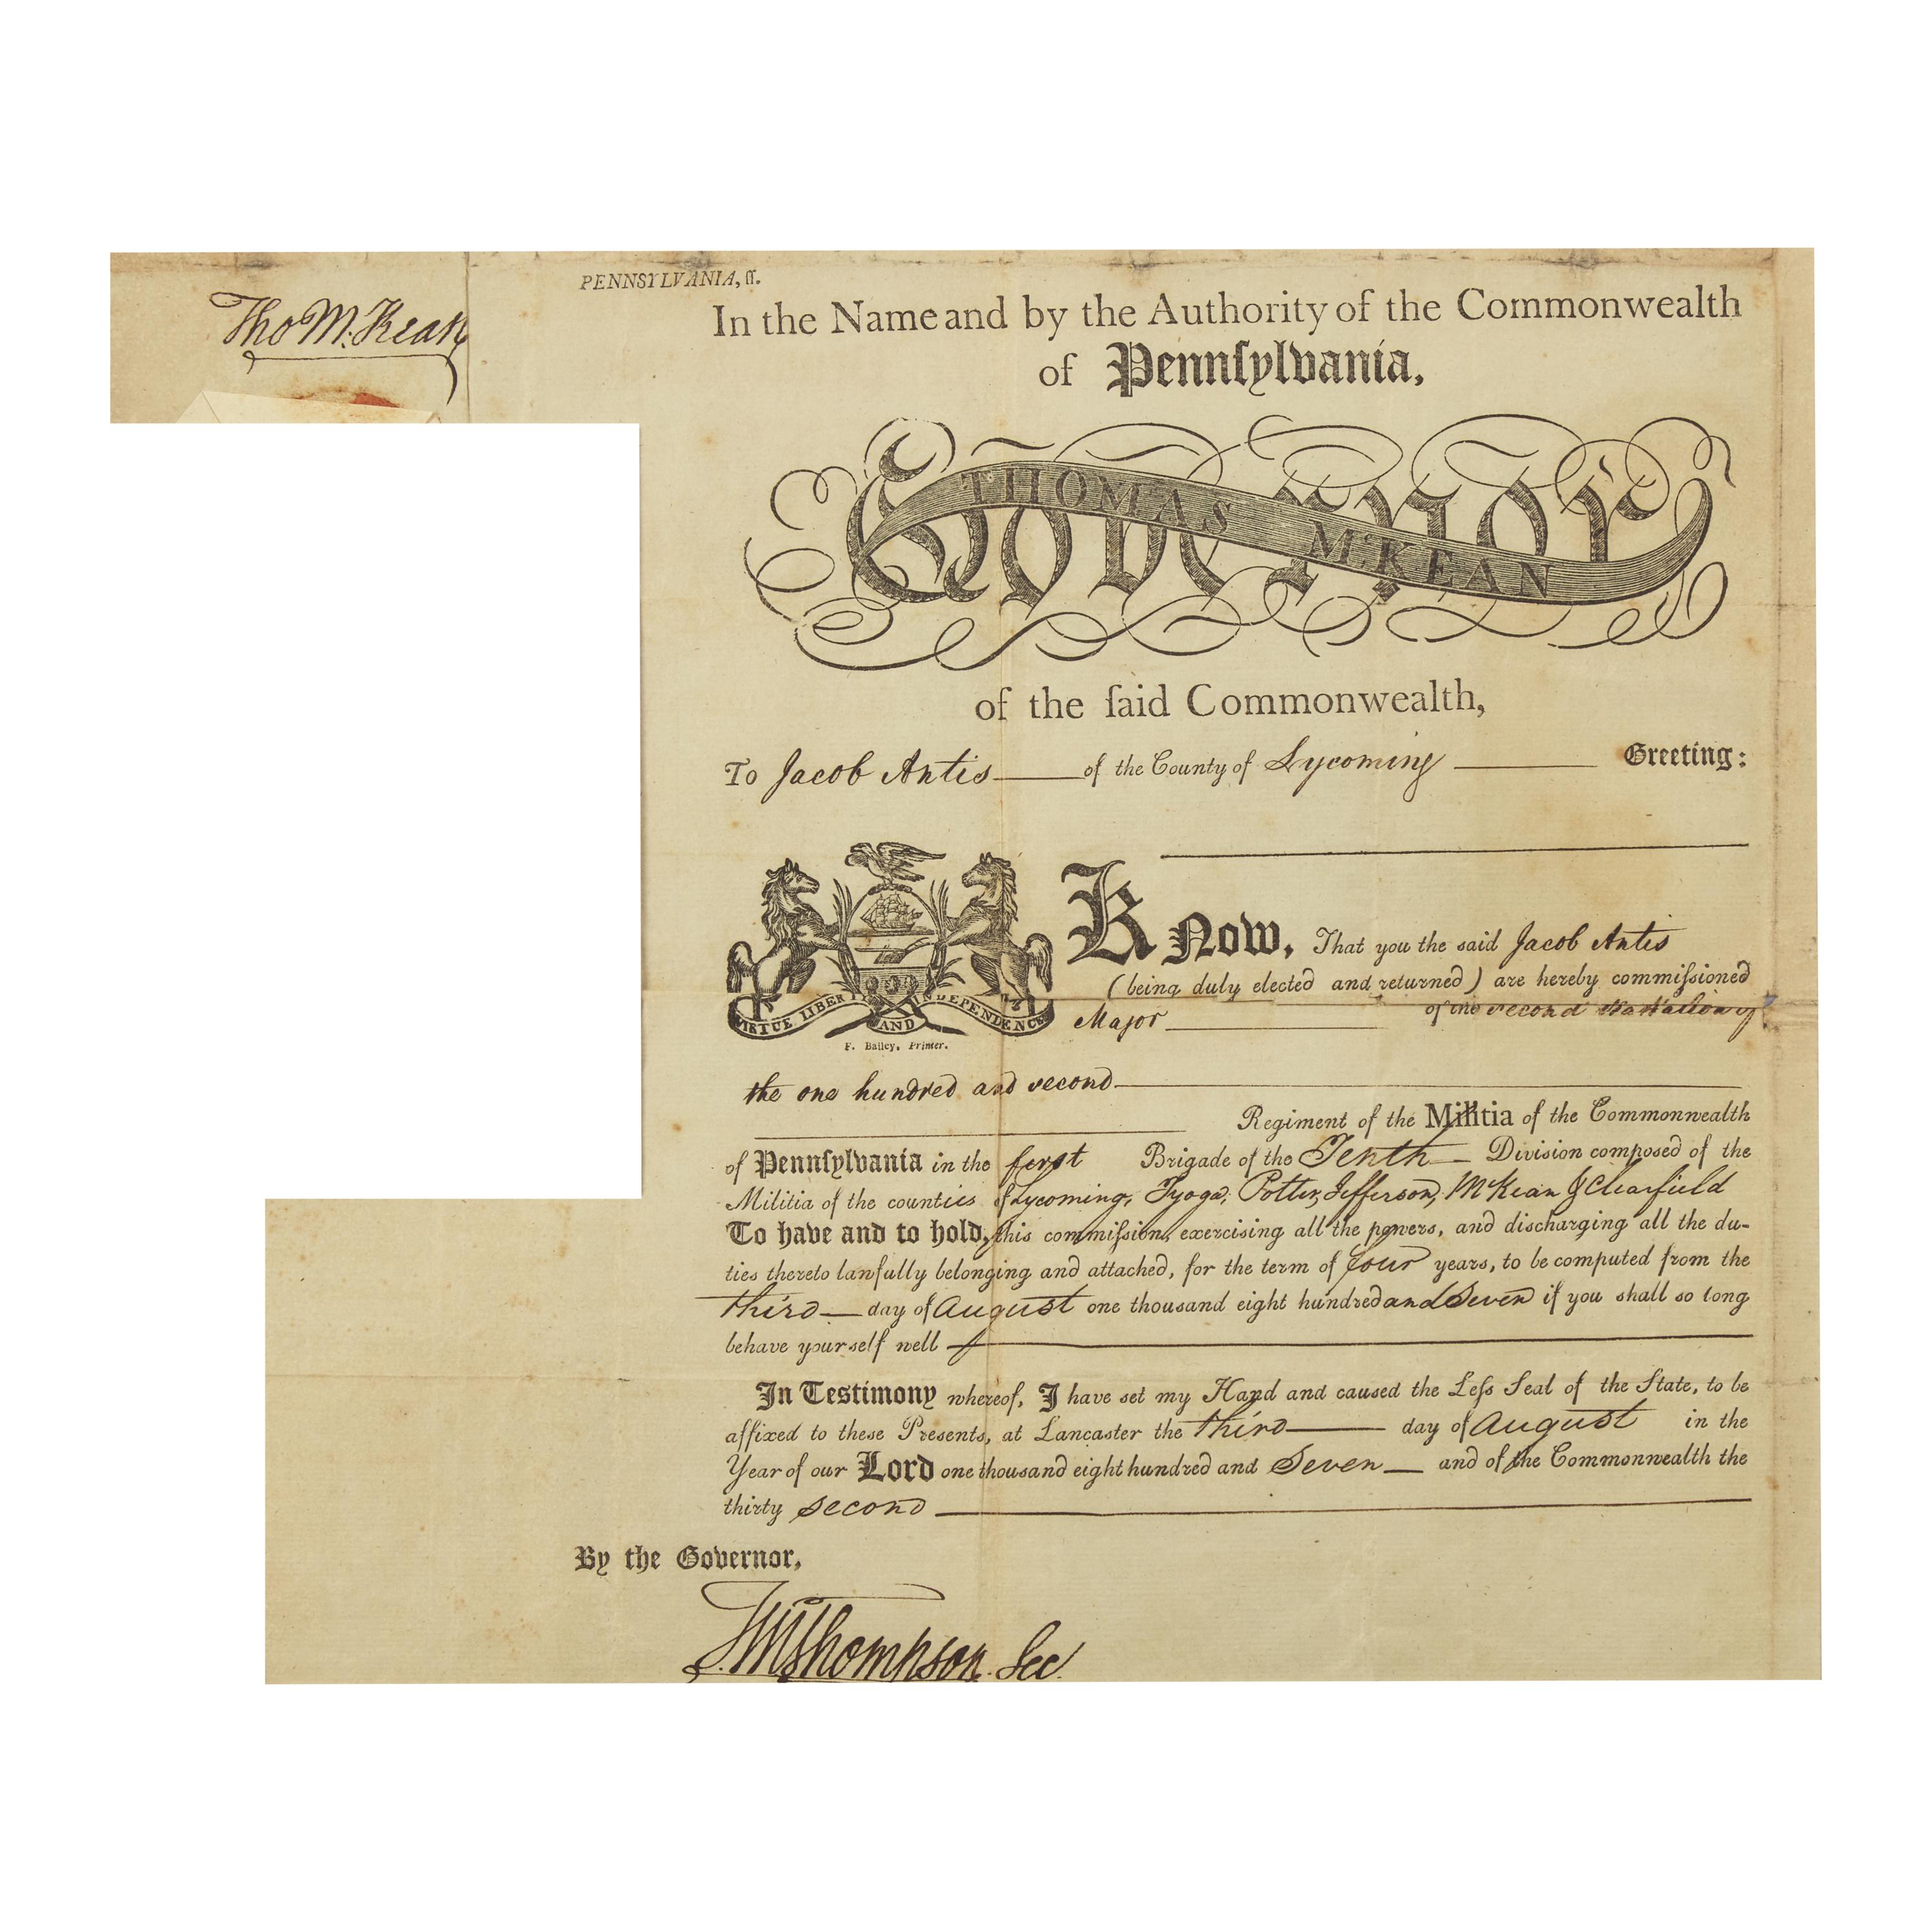 Tho M:Kean
PENNSYLVANIA, ſſ.
In the Name and by the Authority of the Commonwealth
of Pennſylvania,
Governor
THOMAS M:KEAN
of the ſaid Commonwealth,
To Jacob Antis of the County of Lycoming Greeting:
Know, That you the said Jacob Antis
(being duly elected and returned) are hereby commiſsioned
Major of the second Battalion of
VIRTUE LIBERTY AND INDEPENDENCE
F. Bailey, Printer.
the one hundred and second
Regiment of the Militia of the Commonwealth
of Pennſylvania in the first Brigade of the Tenth Division composed of the
Militia of the counties of Lycoming, Tyoga, Potter, Jefferson, McKean & Clearfield
To have and to hold, this commiſsion, exercising all the powers, and discharging all the du-
ties thereto lawfully belonging and attached, for the term of four years, to be computed from the
third day of August one thousand eight hundred and Seven if you shall so long
behave yourself well
In Testimony whereof, I have set my Hand and caused the Leſs Seal of the State, to be
affixed to these Presents, at Lancaster the third day of August in the
Year of our Lord one thousand eight hundred and Seven and of the Commonwealth the
thirty second
By the Governor,
T M Thompson Sec.